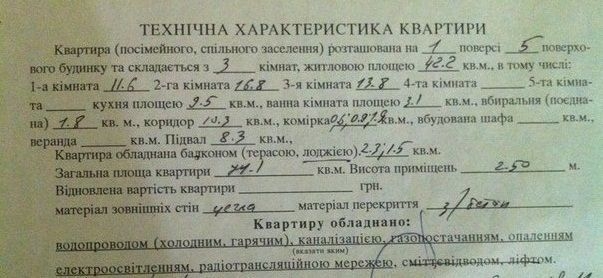 ТЕХНІЧНА ХАРАКТЕРИСТИКА КВАРТИРИ
Квартира (посімейного, спільного заселення) розташована на 1 поверсі 5 поверхо-
вого будинку та складається з 3 кімнат, житловою площею 42.2 кв.м., в тому числі:
1-а кімната 11.6 2-га кімната 16.8 3-я кімната 13.8 4-та кімната 5-та кімна-
та кухня площею 9.5 кв.м., ванна кімната площею 3.1 кв.м., вбиральня (поєдна-
на) 1.8 кв. м., коридор 10.3 кв.м., комірка кв.м., вбудована шафа кв.м.,
веранда кв.м. Підвал 8.3 кв.м.,
Квартира обладнана балконом (терасою, лоджією) 2.3; 1.5 кв.м.
Загальна площа квартири кв.м. Висота приміщень 2.50 м.
Відновлена вартість квартири грн.
матеріал зовнішніх стін цегла матеріал перекриття з/бетон
Квартиру обладнано:
водопроводом (холодним, гарячим), каналізацією, газопостачанням, опаленням
(вказати яким)
електроосвітленням, радіотрансляційною мережею, сміттєвідводом, ліфтом.